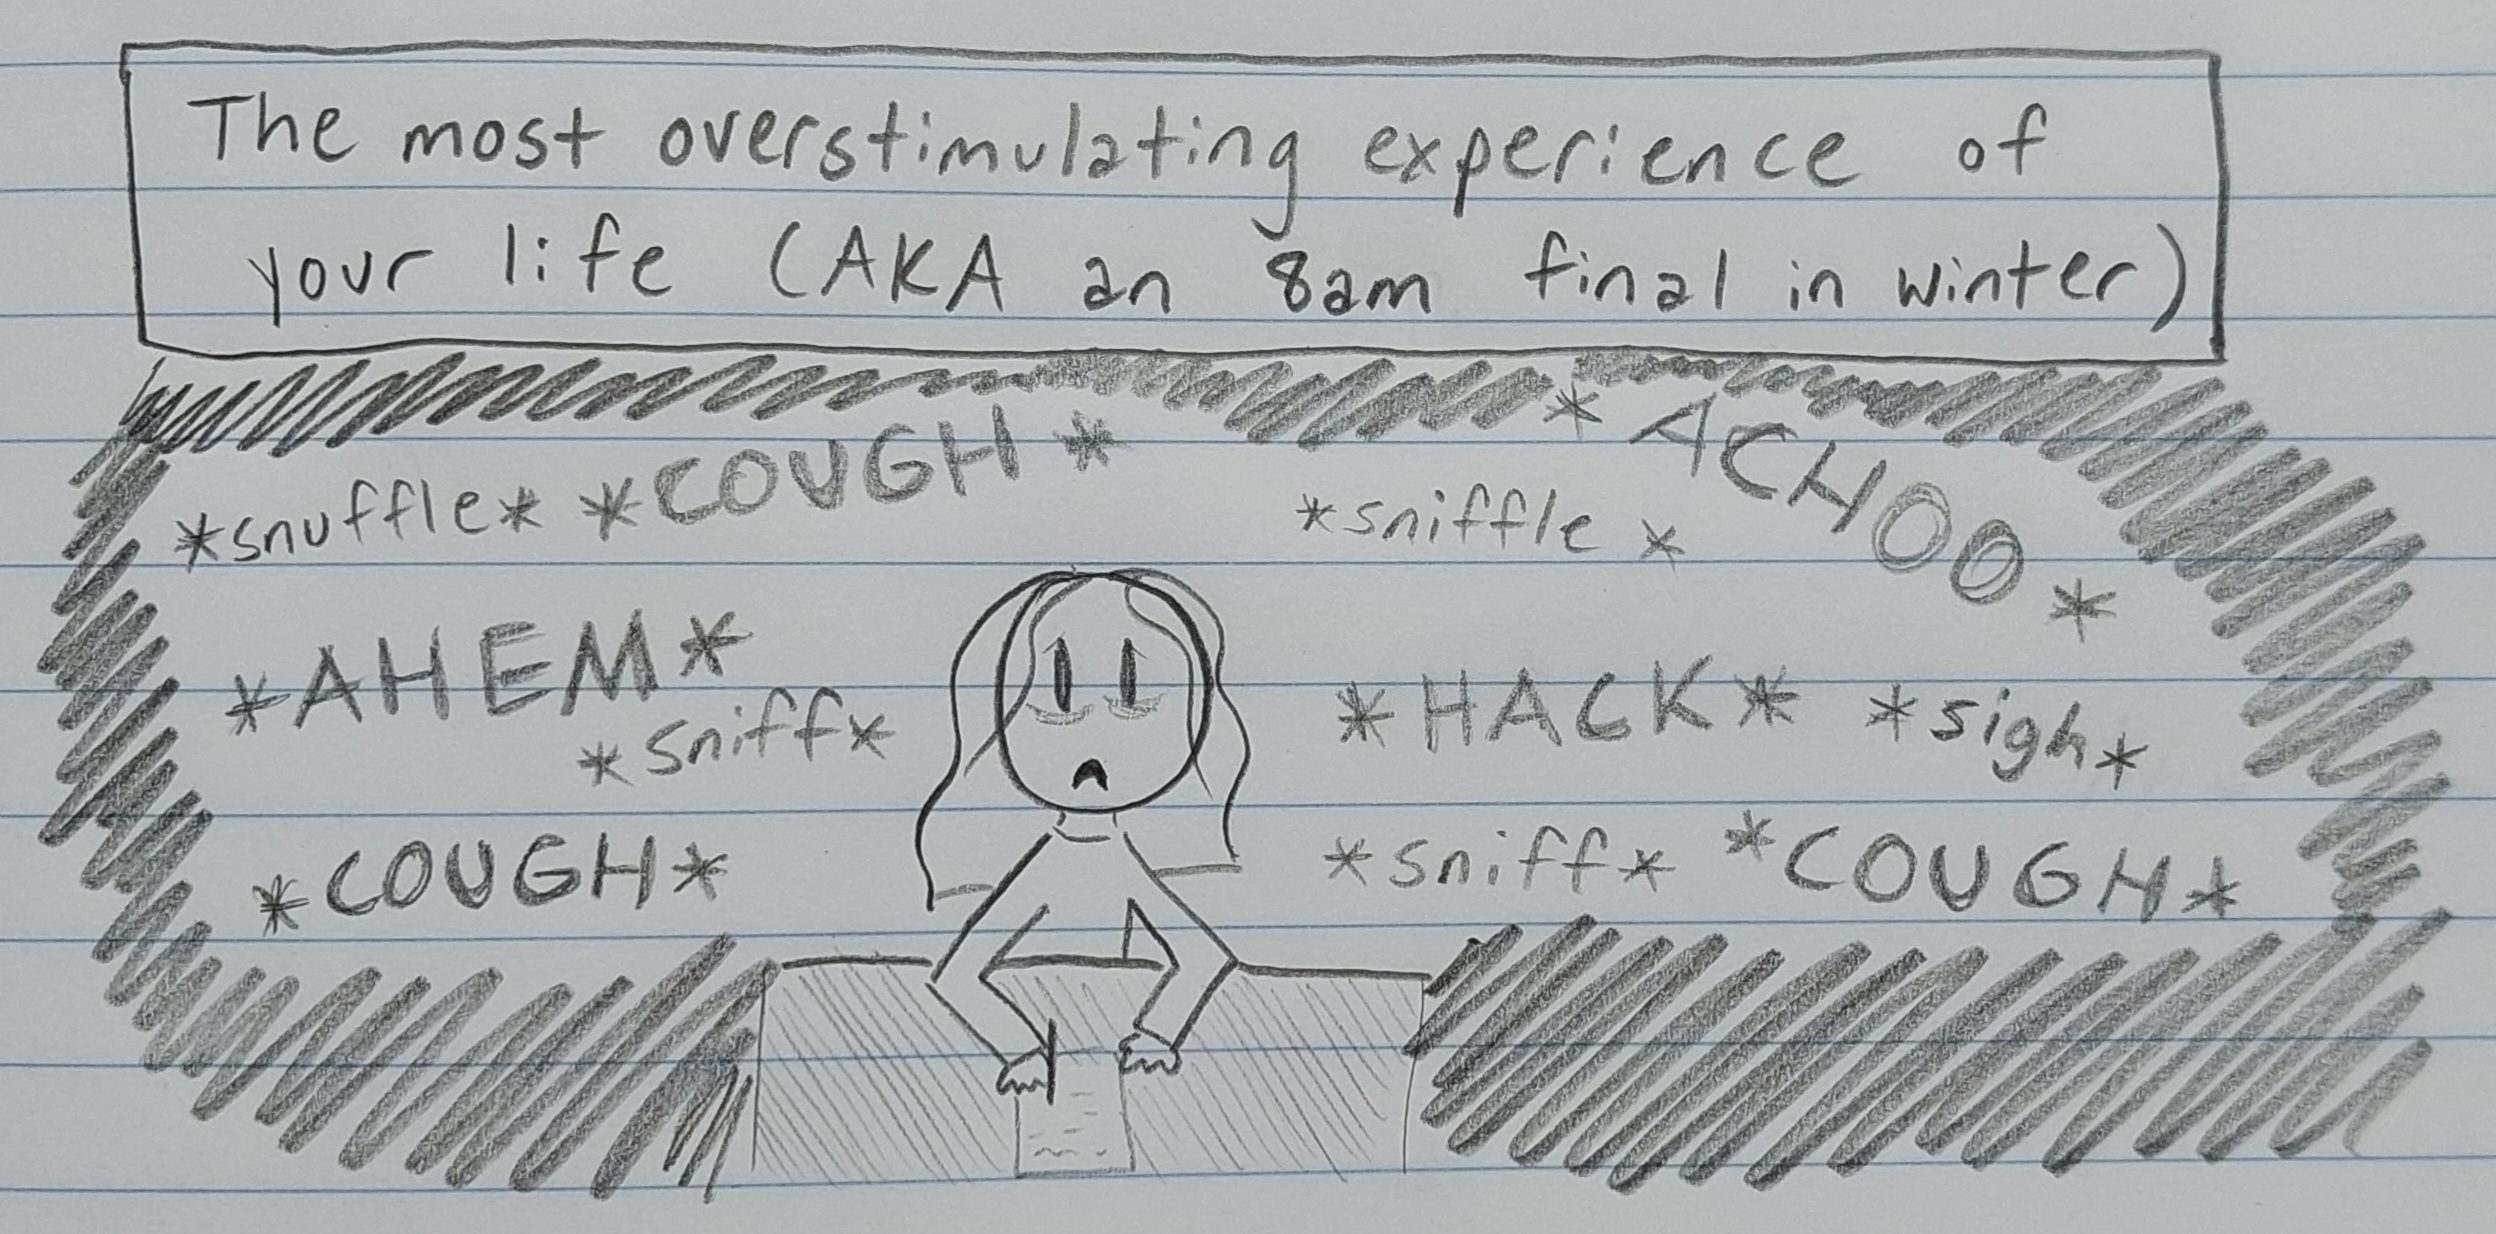 The most overstimulating experience of
your life (AKA an 8am final in winter)
*snuffle* *COUGH*
*sniffle* *ACHOO*
*AHEM*
*sniff*
*HACK* *sigh*
*COUGH*
*sniff* *COUGH*